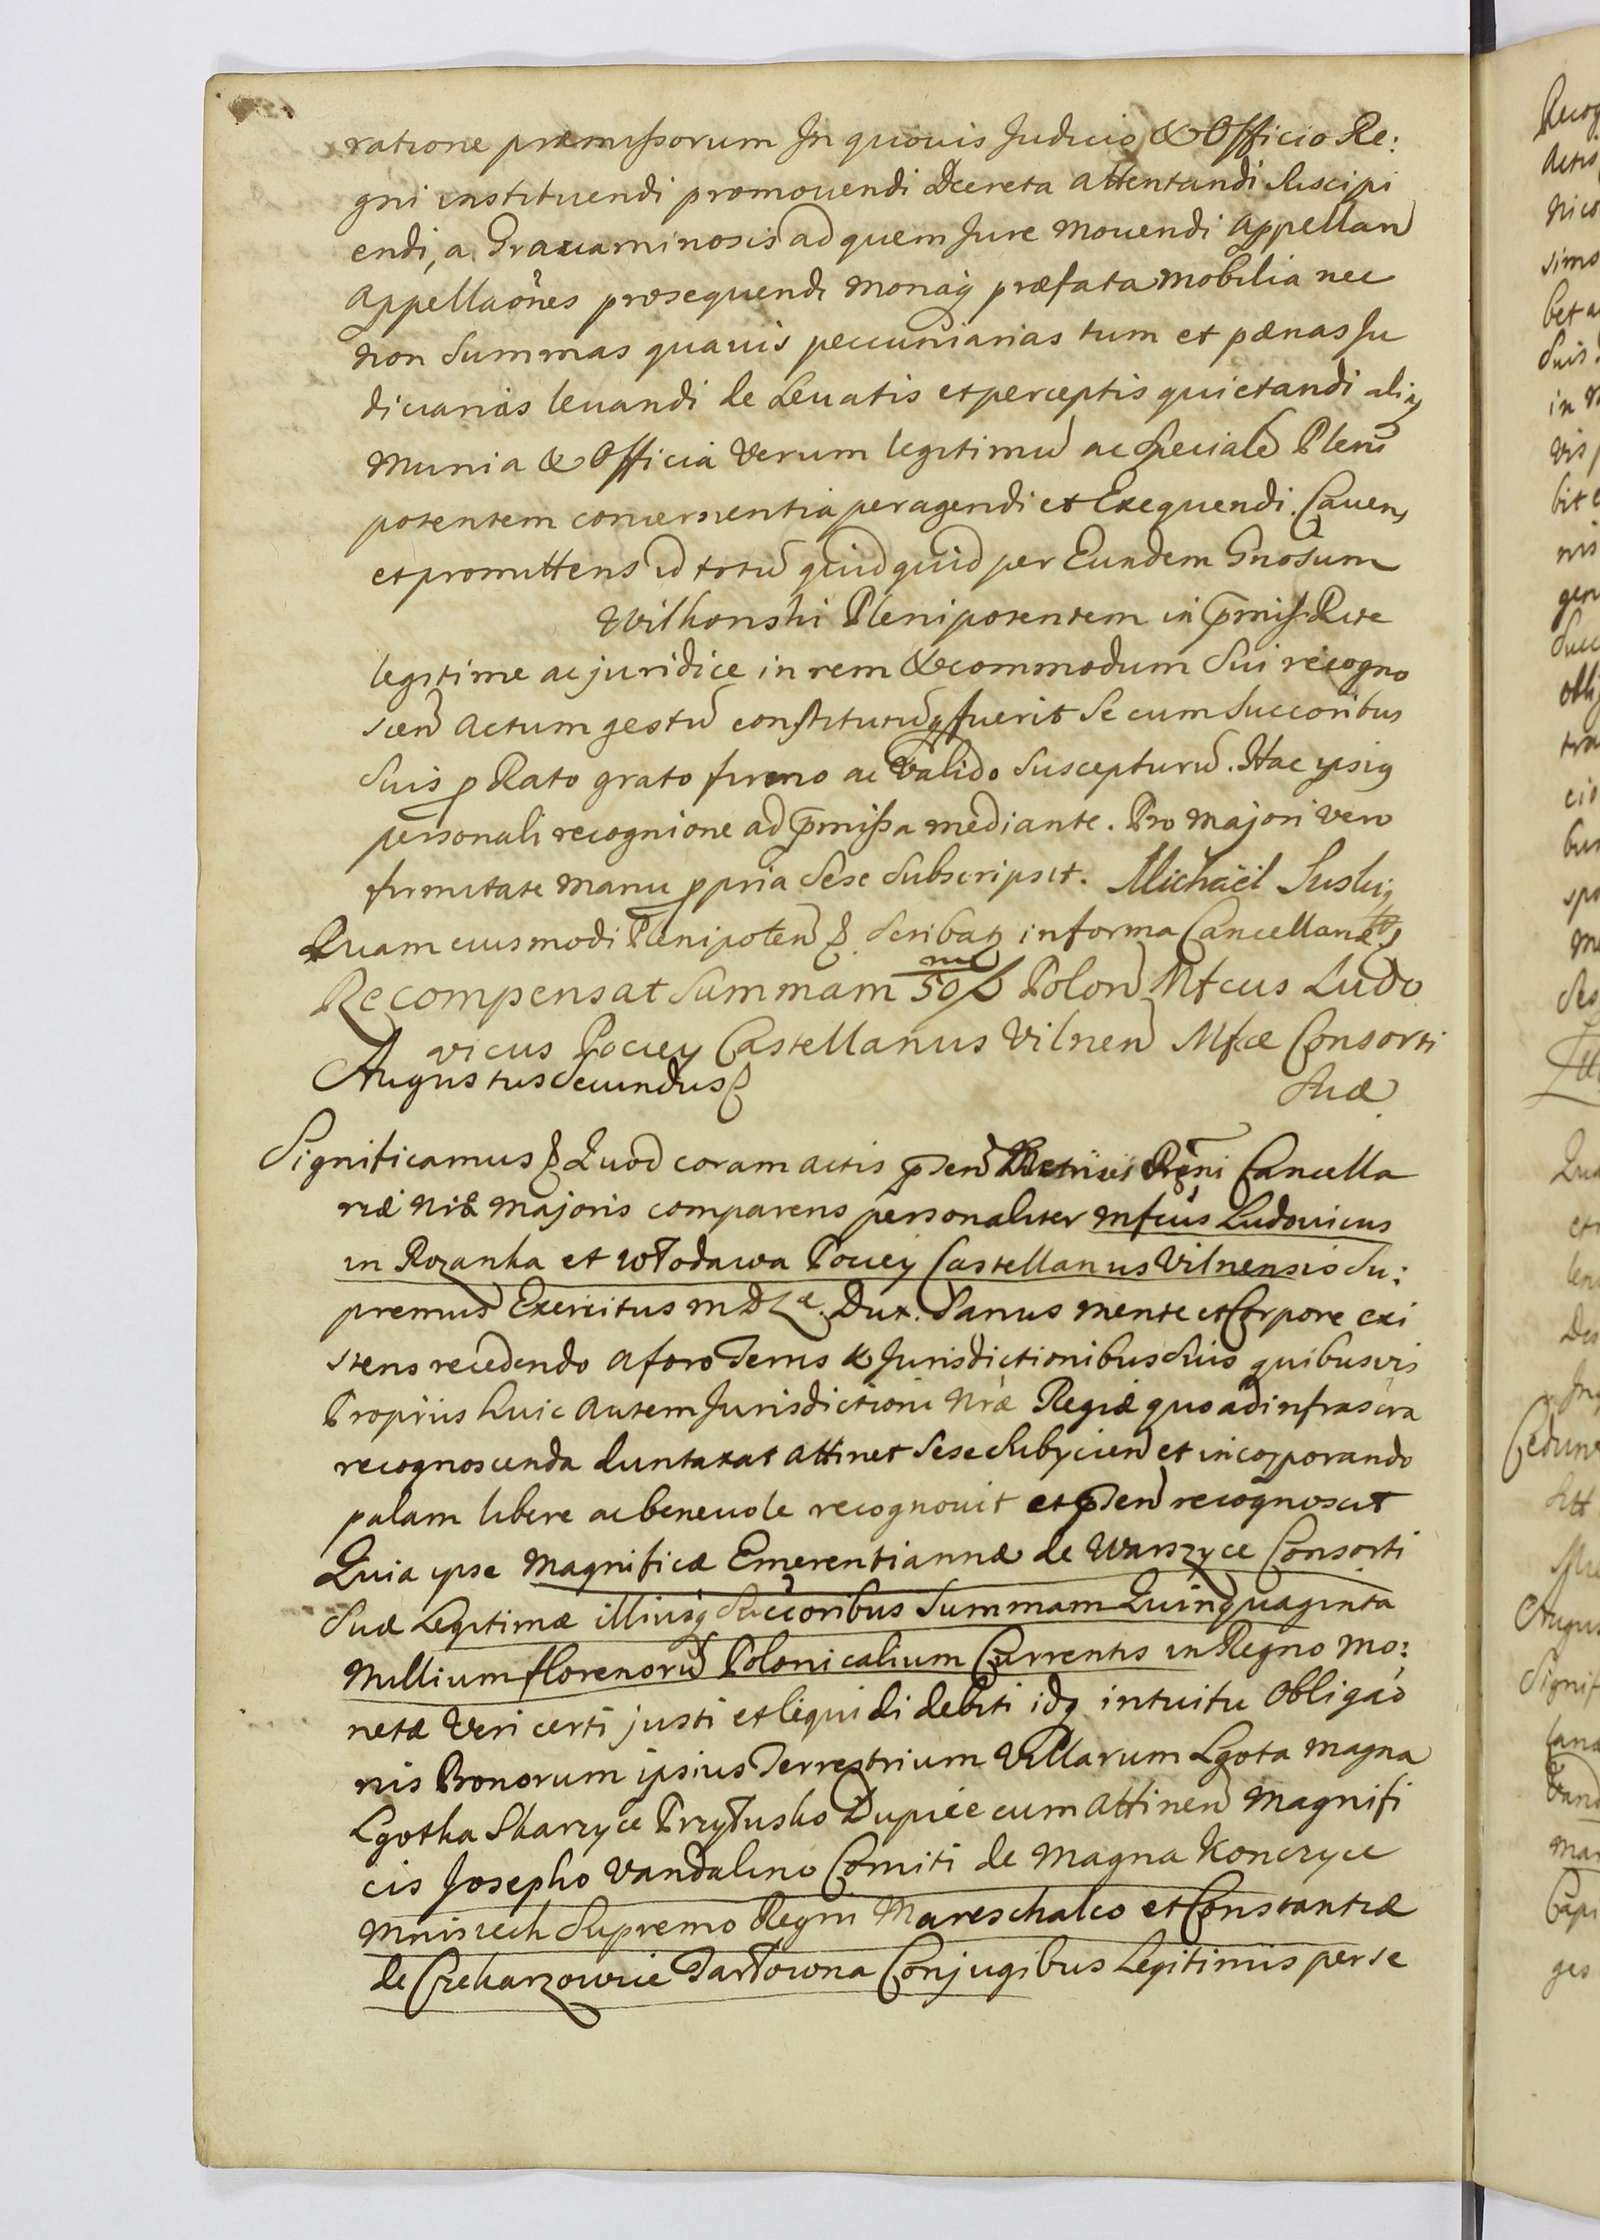 ratione præmissorum In quovis Judicio & Officio Re:
gni instituendi promouendi Decreta attentandi Suscipi
endi, a Grauaminosis ad quem Jure Mouendi appellan
appellaönes prosequendi monaq præfata mobilia nec
non Summas quauis pecuniarias tum et pænas Ju
diciarias leuandi de Leuatis et perceptis quietandi aliaq
Munia & Officia Verum legitimu ac Speciale Pleni
potentem concernentia peragendi et Exequendi. Cauens
et promittens id totu quidquid per Eundem Gnosum
Wilkonski Plenipotentem in pmiss Rite
legitime ac juridice in rem & commodum Sui recogno
scen actum gestu constitutuq fuerit Se cum Succoribus
Suis p Rato grato firmo ac Valido Suscepturu. Hac ipsiq
personali recognione ad pmissa mediante. Pro majori vero
firmitate manu ppria Sese Subscripsit. Michaël Suski
Quam eiusmodi Plenipoten Scribat in forma Cancellariæ
Recompensat Summam 50/m Polon Mfcus Ludo
vicus Pociey Castellanus Vilnen Mfcæ Consorti
Augustus Secundus Suæ
Significamus Quod coram actis pSen Metrices Regni Cancella
riæ Nræ Majoris comparens personaliter Mfcus Ludovicus
in Rozanka et Włodawa Pociey Castellanus Vilnensis Su:
premus Exercitus M D L æ. Dux. Sanus mente et Corpore exi
stens recedendo a foro Terris & Jurisdictionibus Suis quibusvis
Propriis huic autem Jurisdictioni Nræ Regiæ quo ad infrascra
recognoscenda duntaxat attinet Sese Subyicien et incorporando
palam libere ac beneuole recognouit et pSen recognoscit
Quia ipse Magnificæ Emerentiannæ de Warszyce Consorti
Suæ Legitimæ illiusq Succoribus Summam Quinquaginta
Millium florenoru Polonicalium Currentis in Regno Mo:
netæ Veri certi justi et liquidi debiti idq intuitu Obligaö
nis Bonorum ipsius Terrestrium Villarum Lgota Magna
Lgotka Skarzyce Przyłusko Dupice cum Attinen Magnifi
cis Josepho Vandalino Comiti de Magna Konczyce
Mniszech Supremo Regni Mareschalco et Constantiæ
de Czekarzowice Tarłowna Conjugibus Legitimis per se